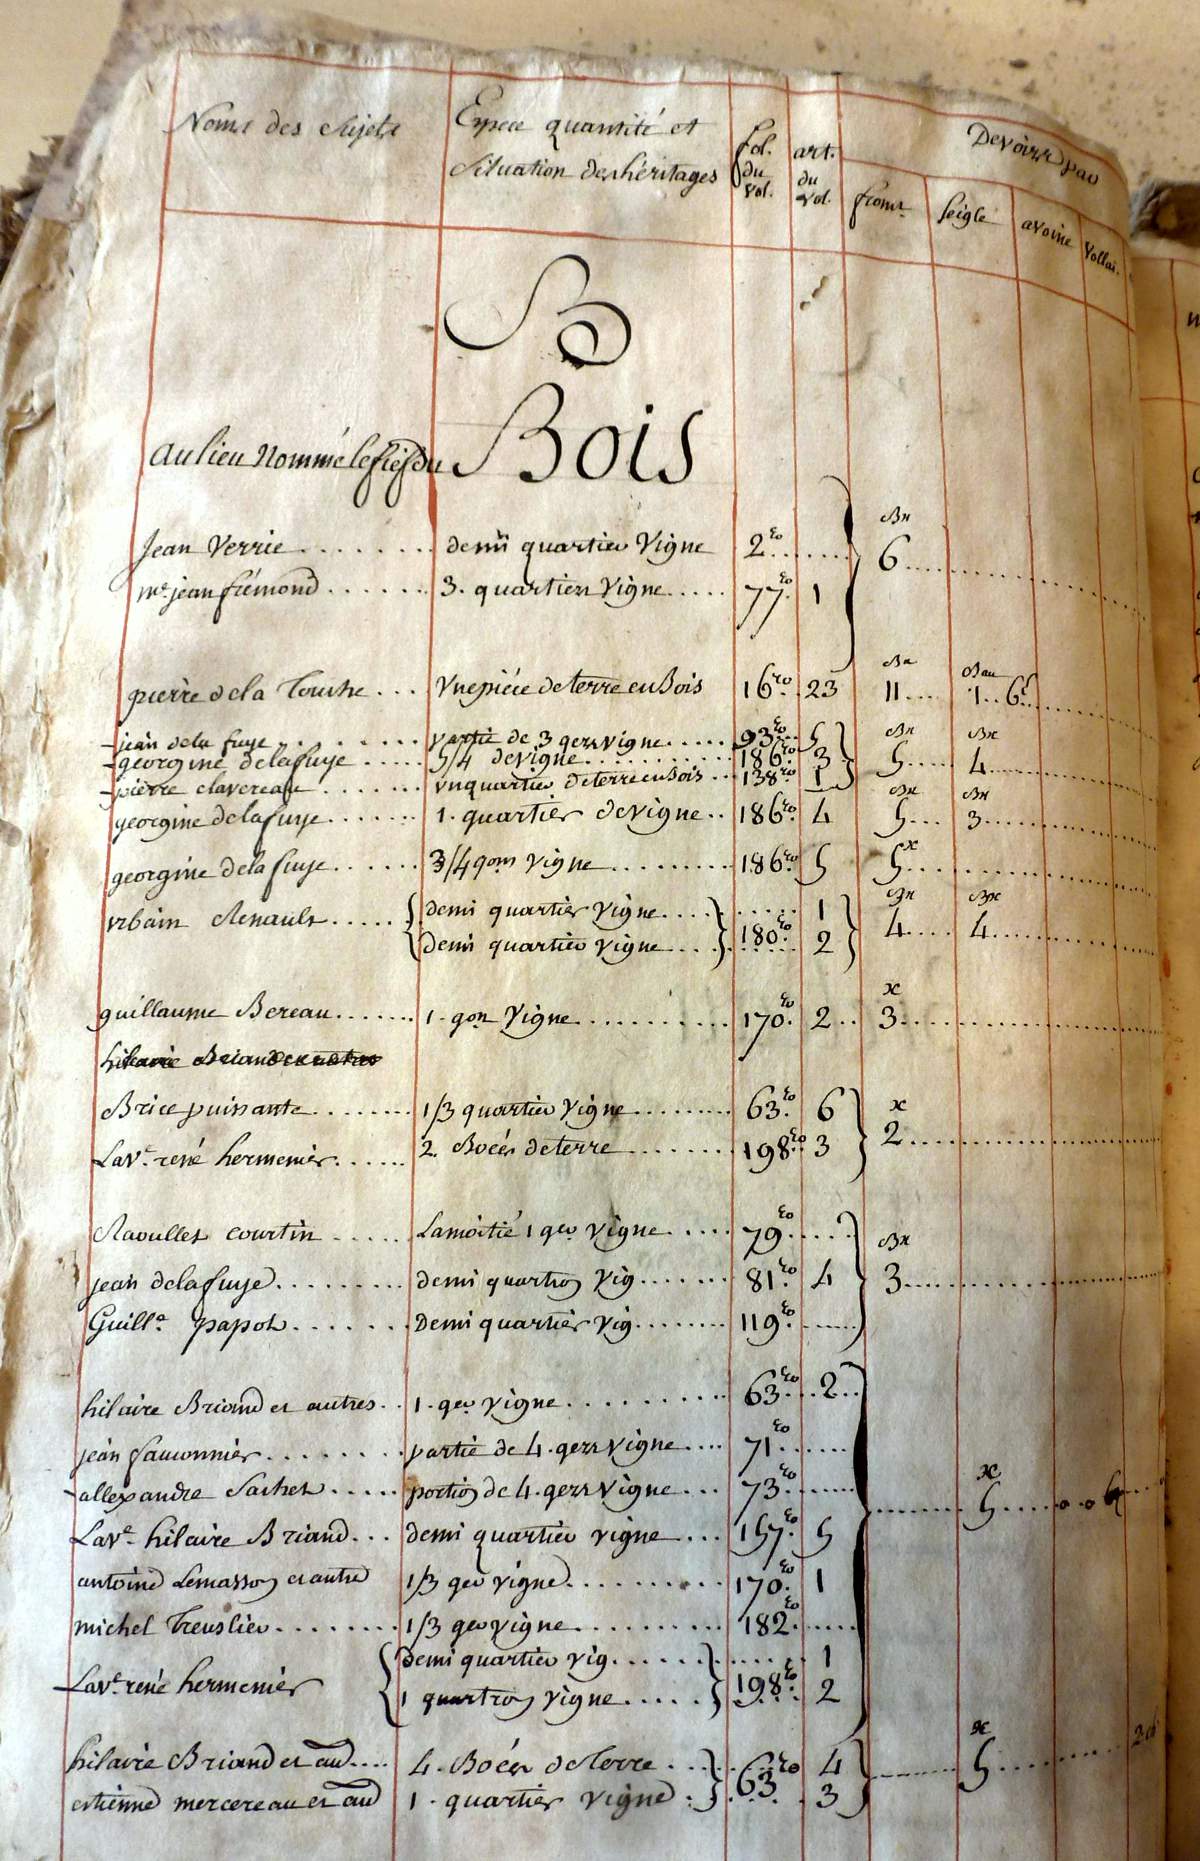 Noms des Sujets Espece quantité et fol. art. Devoirs par
Situation des héritages du vol. du vol. from.t seigle avoine vollai.
B
au lieu Nommé le fief du Bois
Bx
Jean Verrie demi quartier Vigne 2.ro 6
m.e jean frémond 3. quartiers Vigne 77.ro 1
Bx Bau
pierre de la Touche Vne piéce de terre en Bois 16.ro 23 11 1 6
Bx Bx
jean de la fuye partie de 3 qers vigne 93.ro 5
georgine delafuye 5/4 de vigne 186.ro 3 5 4
pierre clavereau vn quartier de terre en Bois 138.ro 1
Bx Bx
georgine delafuye 1. quartier de vigne 186.ro 4 5 3
x
georgine delafuye 3/4 qons vigne 186.ro 5 5
Bx Bx
vrbain Renault demi quartier vigne 1
demi quartier vigne 180.ro 2 4 4
x
guillaume Bereau 1. qon Vigne 170.ro 2 3
hilaire Briand et autres
x
Brice puissante 1/3 quartier Vigne 63.ro 6
Lav.e rené hermenier 2. Boées de terre 198.ro 3 2
Raoullet courtin Lamoitié 1 qer vigne 79.ro
Bx
jean delafuye demi quartron vig 81.ro 4 3
Guill.e papot Demi quartier vig 119.ro
hilaire Briand et autres 1. qer vigne 63.ro 2
jean fauconnier partie de 4. qers vigne 71.ro
x
allexandre Sachet portion de 4. qers vigne 73.ro 5
Lav.e hilaire Briand demi quartier vigne 157.ro 5
antoine Lemasson et autre 1/3 qer vigne 170.ro 1
michel Treuslier 1/3 qer vigne 182.ro
demi quartier vig 1
Lav.e rené hermenier 1 quartron vigne 198.ro 2
x
hilaire Briand et au 4. Boées de Terre 63.ro 4 5
estienne mercereau et au 1. quartier vigne 3